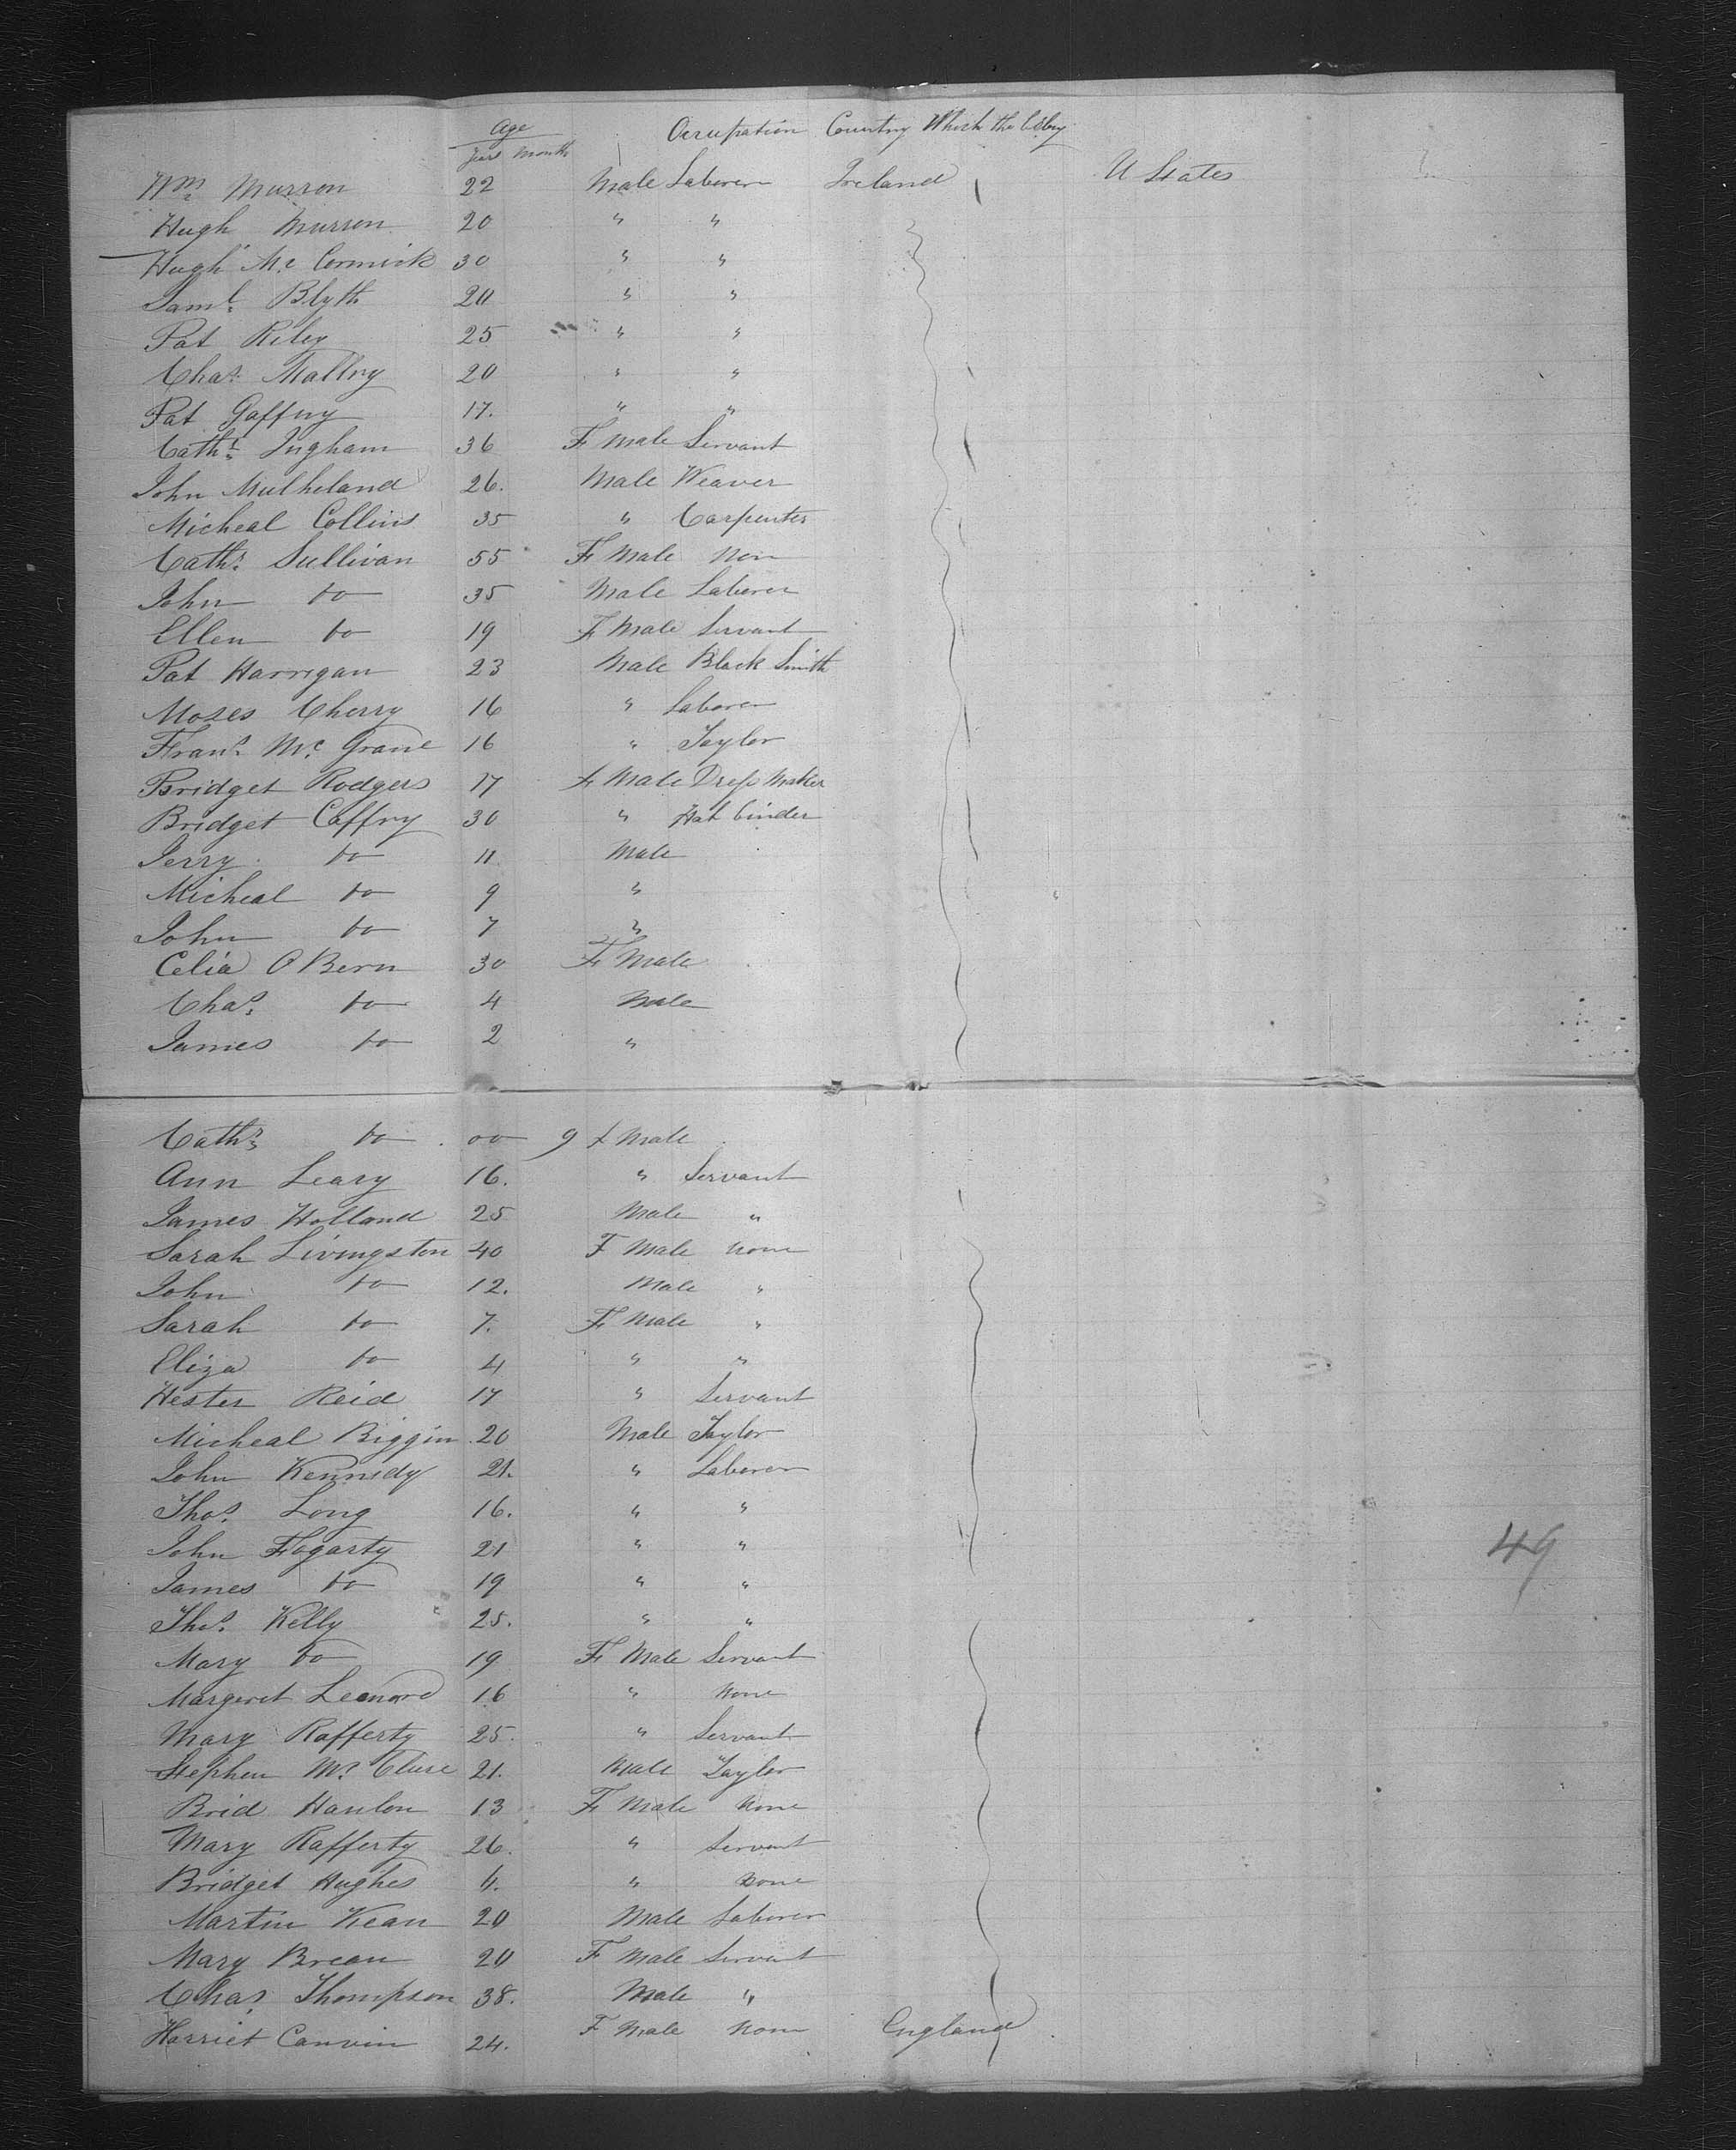 Age Occupation Country Which the belong
Years Months
Wm Murron 22 Male Laborer Ireland U States
Hugh Murron 20 " "
Hugh Mc Cormick 30 " "
Saml Blyth 20 " "
Pat Riley 25 " "
Chas Mallny 20 " "
Pat Gaffny 17. " "
Cathe Ingham 36 F Male Servant
John Mulheland 26. Male Weaver
Micheal Collins 35 " Carpenter
Cathr Sullivan 55 F Male Non
John do 35 Male Laborer
Ellen do 19 F Male Servant
Pat Harrigan 23 Male Black Smith
Moses Cherry 16 " Laborer
Frans Mc Grane 16 " Taylor
Bridget Rodgers 17 F Male Dress Maker
Bridget Caffry 30 " Hat binder
Jerry do 11 Male
Micheal do 9 "
John do 7 "
Celia O Bern 30 F Male
Chas do 4 Male
James do 2 "
Cathr do 00 9 F Male
Ann Leary 16. " Servant
James Holland 25 Male "
Sarah Livingston 40 F Male None
John do 12. Male "
Sarah do 7. F Male "
Eliza do 4 " "
Hester Reid 17 " Servant
Micheal Biggin 20 Male Taylor
John Kennedy 21. " Laborer
Thos Long 16. " "
John Fogarty 21 " "
49
James do 19 " "
Thos Kelly 25. " "
Mary do 19 F Male Servant
Margeret Leonard 16 " None
Mary Rafferty 25. " Servant
Stephen Mc Clure 21. Male Taylor
Brid Hanlon 13 F Male None
Mary Rafferty 26. " Servant
Bridget Hughes 6. " None
Martin Kean 20 Male Laborer
Mary Brean 20 F Male Servant
Chas Thompson 38. Male "
Harriet Canvin 24. F Male None England